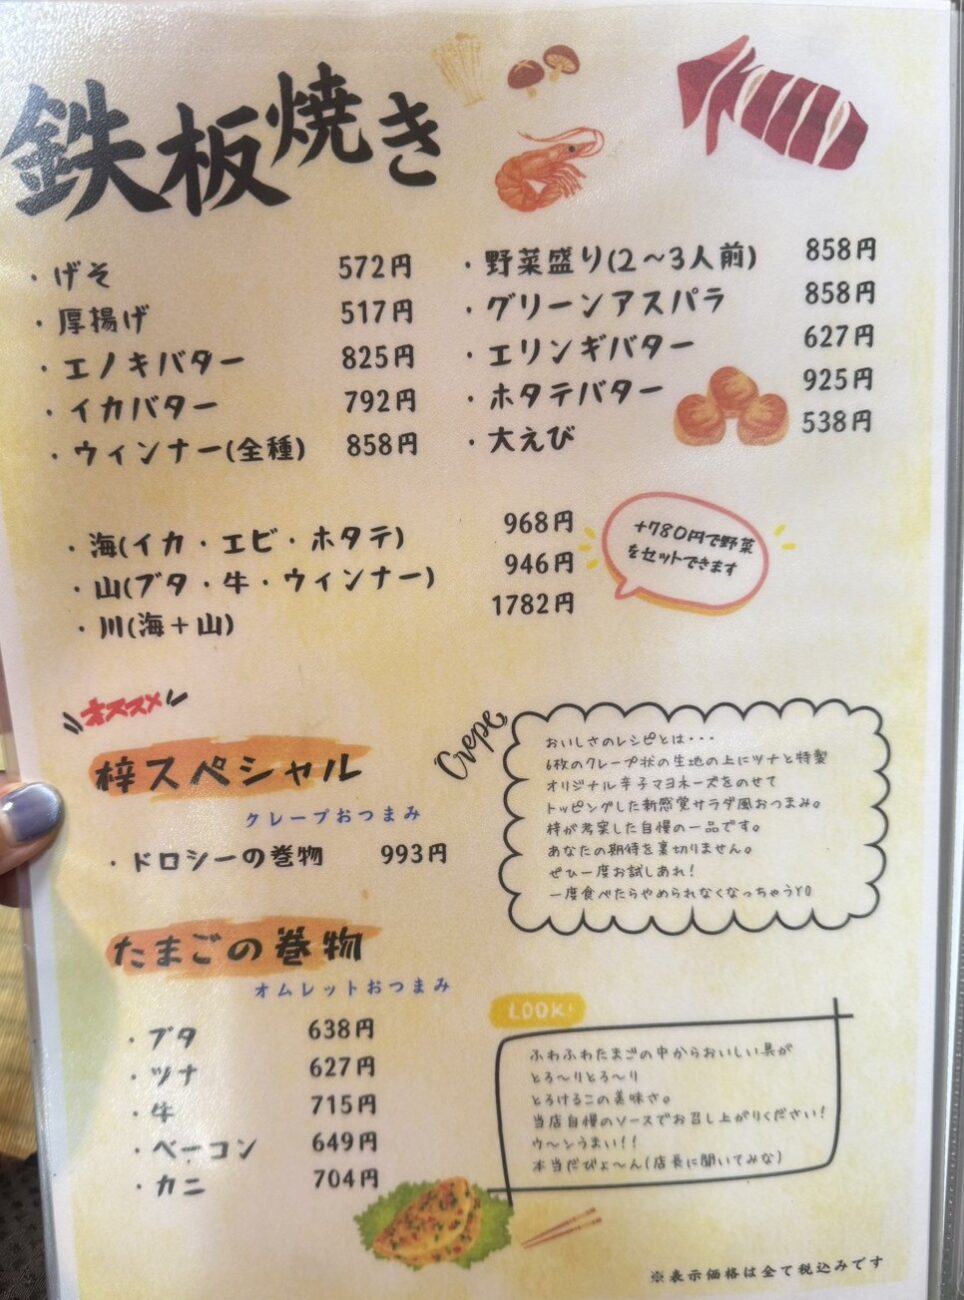 鉄板焼き
・げそ 572円
・厚揚げ 517円
・エノキバター 825円
・イカバター 792円
・ウィンナー(全種) 858円
・野菜盛り(2〜3人前) 858円
・グリーンアスパラ 858円
・エリンギバター 627円
・ホタテバター 925円
・大えび 538円
・海(イカ・エビ・ホタテ) 968円
・山(ブタ・牛・ウィンナー) 946円
・川(海+山) 1782円
+780円で野菜
をセットできます
オススメ
梓スペシャル
クレープおつまみ
・ドロシーの巻物 993円
Crepe
おいしさのレシピとは・・・
6枚のクレープ状の生地の上にツナと特製
オリジナル辛子マヨネーズをのせて
トッピングした新感覚サラダ風おつまみ。
梓が考案した自慢の一品です。
あなたの期待を裏切りません。
ぜひ一度お試しあれ!
一度食べたらやめられなくなっちゃうYO
たまごの巻物
オムレットおつまみ
・ブタ 638円
・ツナ 627円
・牛 715円
・ベーコン 649円
・カニ 704円
LOOK!
ふわふわたまごの中からおいしい具が
とろ〜りとろ〜り
とろけるこの美味さ。
当店自慢のソースでお召し上がりください!
ウ〜ンうまい!!
本当だぴょ〜ん(店長に聞いてみな)
※表示価格は全て税込みです